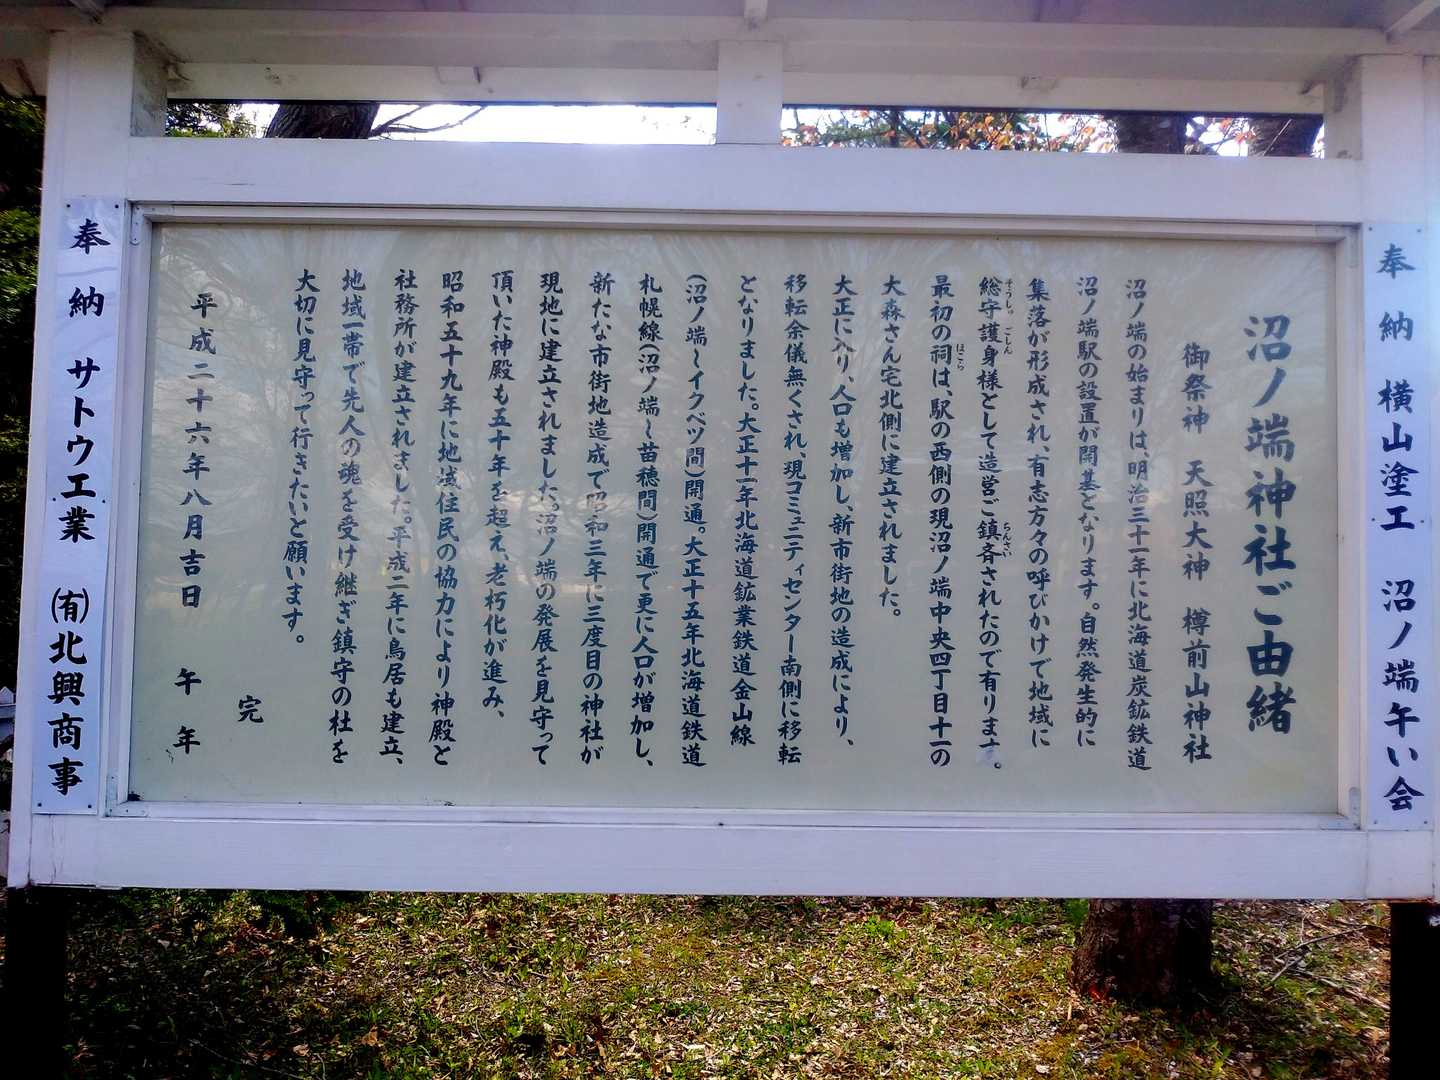 奉納 横山塗工 沼ノ端午い会
沼ノ端神社ご由緒
御祭神 天照大神 樽前山神社
沼ノ端の始まりは、明治三十一年に北海道炭鉱鉄道
沼ノ端駅の設置が開基となります。自然発生的に
集落が形成され、有志方々の呼びかけで地域に
総守護身様として造営ご鎮斉されたので有ります。
そうしゅ ごしん ちんさい
最初の祠は、駅の西側の現沼ノ端中央四丁目十一の
ほこら
大森さん宅北側に建立されました。
大正に入り、人口も増加し、新市街地の造成により、
移転余儀無くされ、現コミュニティセンター南側に移転
となりました。大正十一年北海道鉱業鉄道金山線
(沼ノ端~イクベツ間)開通。大正十五年北海道鉄道
札幌線(沼ノ端~苗穂間)開通で更に人口が増加し、
新たな市街地造成で昭和三年に三度目の神社が
現地に建立されました。沼ノ端の発展を見守って
頂いた神殿も五十年を超え、老朽化が進み、
昭和五十九年に地域住民の協力により神殿と
社務所が建立されました。平成二年に鳥居も建立、
地域一帯で先人の魂を受け継ぎ鎮守の杜を
大切に見守って行きたいと願います。
完
平成二十六年八月吉日 午年
奉納 サトウ工業 (有)北興商事